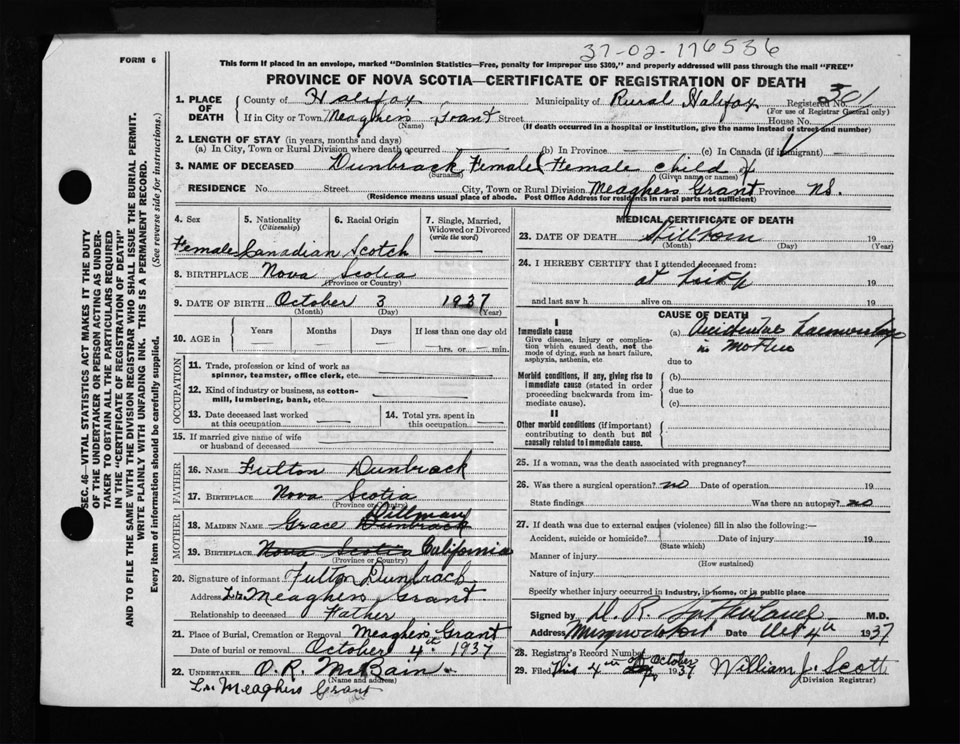 37-02-176536
FORM 6
This form if placed in an envelope, marked "Dominion Statistics—Free, penalty for improper use $300," and properly addressed will pass through the mail "FREE"
PROVINCE OF NOVA SCOTIA—CERTIFICATE OF REGISTRATION OF DEATH
1. PLACE OF DEATH County of Halifax Municipality of Rural Halifax Registered No. 301
(For use of Registrar General only)
If in City or Town Meaghers Grant Street House No.
(Name) (If death occurred in a hospital or institution, give the name instead of street and number)
2. LENGTH OF STAY (in years, months and days)
(a) In City, Town or Rural Division where death occurred (b) In Province (c) In Canada (if immigrant)
3. NAME OF DECEASED Dunbrack Female (Female child of
(Surname) (Given name or names)
RESIDENCE No. Street City, Town or Rural Division Meaghers Grant Province N.S.
(Residence means usual place of abode. Post Office Address for residents in rural parts not sufficient)
4. Sex 5. Nationality (Citizenship) 6. Racial Origin 7. Single, Married, Widowed or Divorced (write the word)
Female Canadian Scotch
8. BIRTHPLACE Nova Scotia
(Province or Country)
9. DATE OF BIRTH October 3 1937
(Month) (Day) (Year)
10. AGE in Years Months Days If less than one day old
hrs. or min.
OCCUPATION
11. Trade, profession or kind of work as spinner, teamster, office clerk, etc.
12. Kind of industry or business, as cotton-mill, lumbering, bank, etc.
13. Date deceased last worked at this occupation
14. Total yrs. spent in this occupation
15. If married give name of wife or husband of deceased
FATHER
16. NAME Fulton Dunbrack
17. BIRTHPLACE Nova Scotia
(Province or Country)
MOTHER
Dillman
18. MAIDEN NAME Grace Dunbrack
19. BIRTHPLACE Nova Scotia California
(Province or Country)
20. Signature of informant Fulton Dunbrack
Address Meaghers Grant
Relationship to deceased Father
21. Place of Burial, Cremation or Removal Meaghers Grant
Date of burial or removal October 4th 1937
22. UNDERTAKER O. R. McBain
(Name and address)
Meaghers Grant
MEDICAL CERTIFICATE OF DEATH
23. DATE OF DEATH Stillborn 19
(Month) (Day) (Year)
24. I HEREBY CERTIFY that I attended deceased from:
at birth 19
and last saw h alive on 19
CAUSE OF DEATH
I
Immediate cause (a) Accidental haemorrhage
Give disease, injury or complication which caused death, not the mode of dying, such as heart failure, asphyxia, asthenia, etc
in mother
due to
Morbid conditions, if any, giving rise to immediate cause (stated in order proceeding backwards from immediate cause).
(b)
due to
(c)
II
Other morbid conditions (if important) contributing to death but not causally related to immediate cause.
25. If a woman, was the death associated with pregnancy?
26. Was there a surgical operation? no Date of operation 19
State findings Was there an autopsy? no
27. If death was due to external causes (violence) fill in also the following:—
Accident, suicide or homicide? Date of injury 19
(State which)
Manner of injury
(How sustained)
Nature of injury
Specify whether injury occurred in industry, in home, or in public place
Signed by D. R. Sutherland M.D.
Address Musquodoboit Date Oct 4th 1937
28. Registrar's Record Number
29. Filed This 4 of October 1937 William J. Scott
(Division Registrar)
SEC. 46—VITAL STATISTICS ACT MAKES IT THE DUTY
OF THE UNDERTAKER OR PERSON ACTING AS UNDERTAKER
TO OBTAIN ALL THE PARTICULARS REQUIRED
IN THE "CERTIFICATE OF REGISTRATION OF DEATH"
AND TO FILE THE SAME WITH THE DIVISION REGISTRAR WHO SHALL ISSUE THE BURIAL PERMIT.
WRITE PLAINLY WITH UNFADING INK. THIS IS A PERMANENT RECORD.
Every item of information should be carefully supplied. (See reverse side for instructions.)